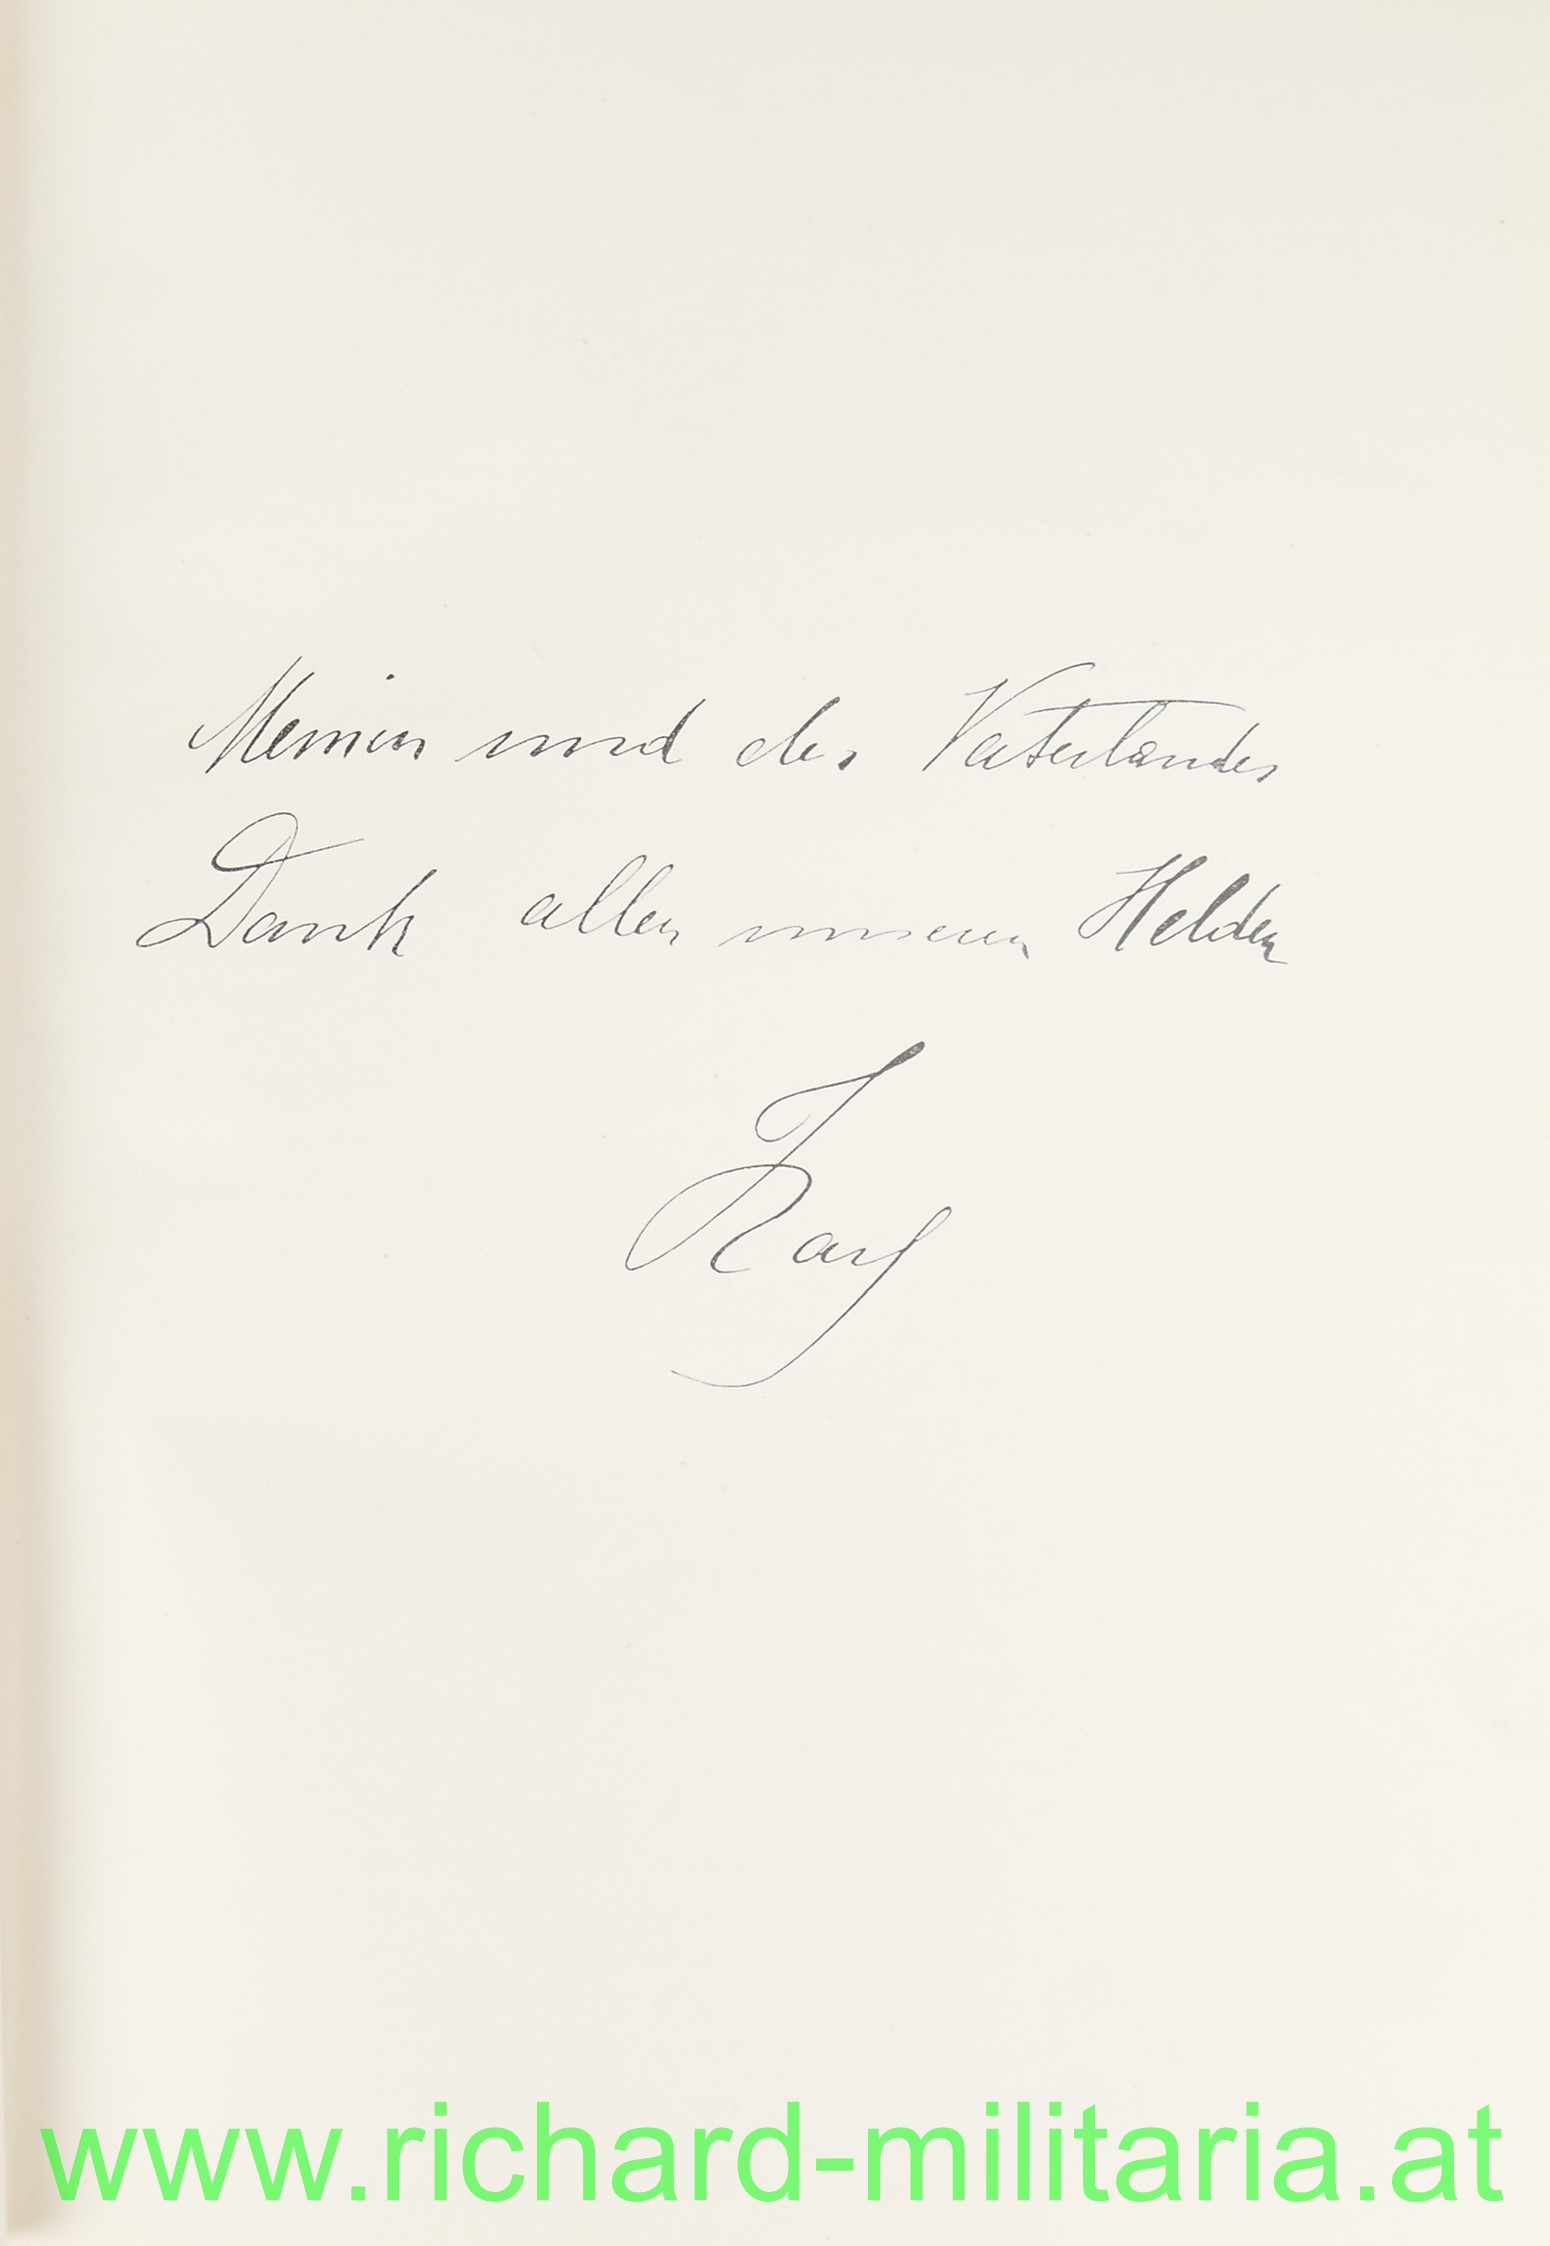 Meinen und des Vaterlandes
Dank allen unseren Helden
Karl
www.richard-militaria.at